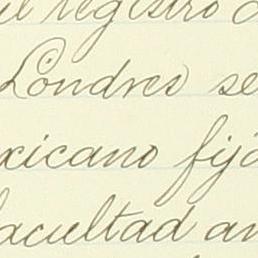 el registro d
Londres se
xicano fijó
facultad an